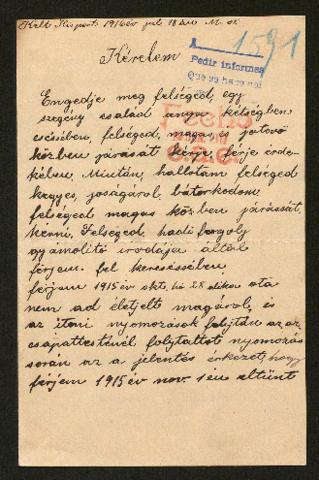 Kelt Kispest 1916 év juli 18 án
1591
Pedir informes
Que se haga
Kérelem
Fecho
Engedje meg felséged, egy
szegény család anya kétségben
esésében, felséged, magas és jótevö
közben járását kérje, férje érde-
kében. Miután, hallotám felséged
kegyes, joságárol, bátorkodom
felséged magas közben járását,
kérni, Felséged, hadi fogoly
gyámolitó irodája által
férjem fel keresésében,
férjem 1915 év okt. hó 28 dikai óta
nem ad életjelt magárol, és
az itoni nyomozások folytán az az
csapattesténél folytattott nyomozás
során az a jelentés érkezet, hogy
férjem 1915 év nov. 1 én eltünt